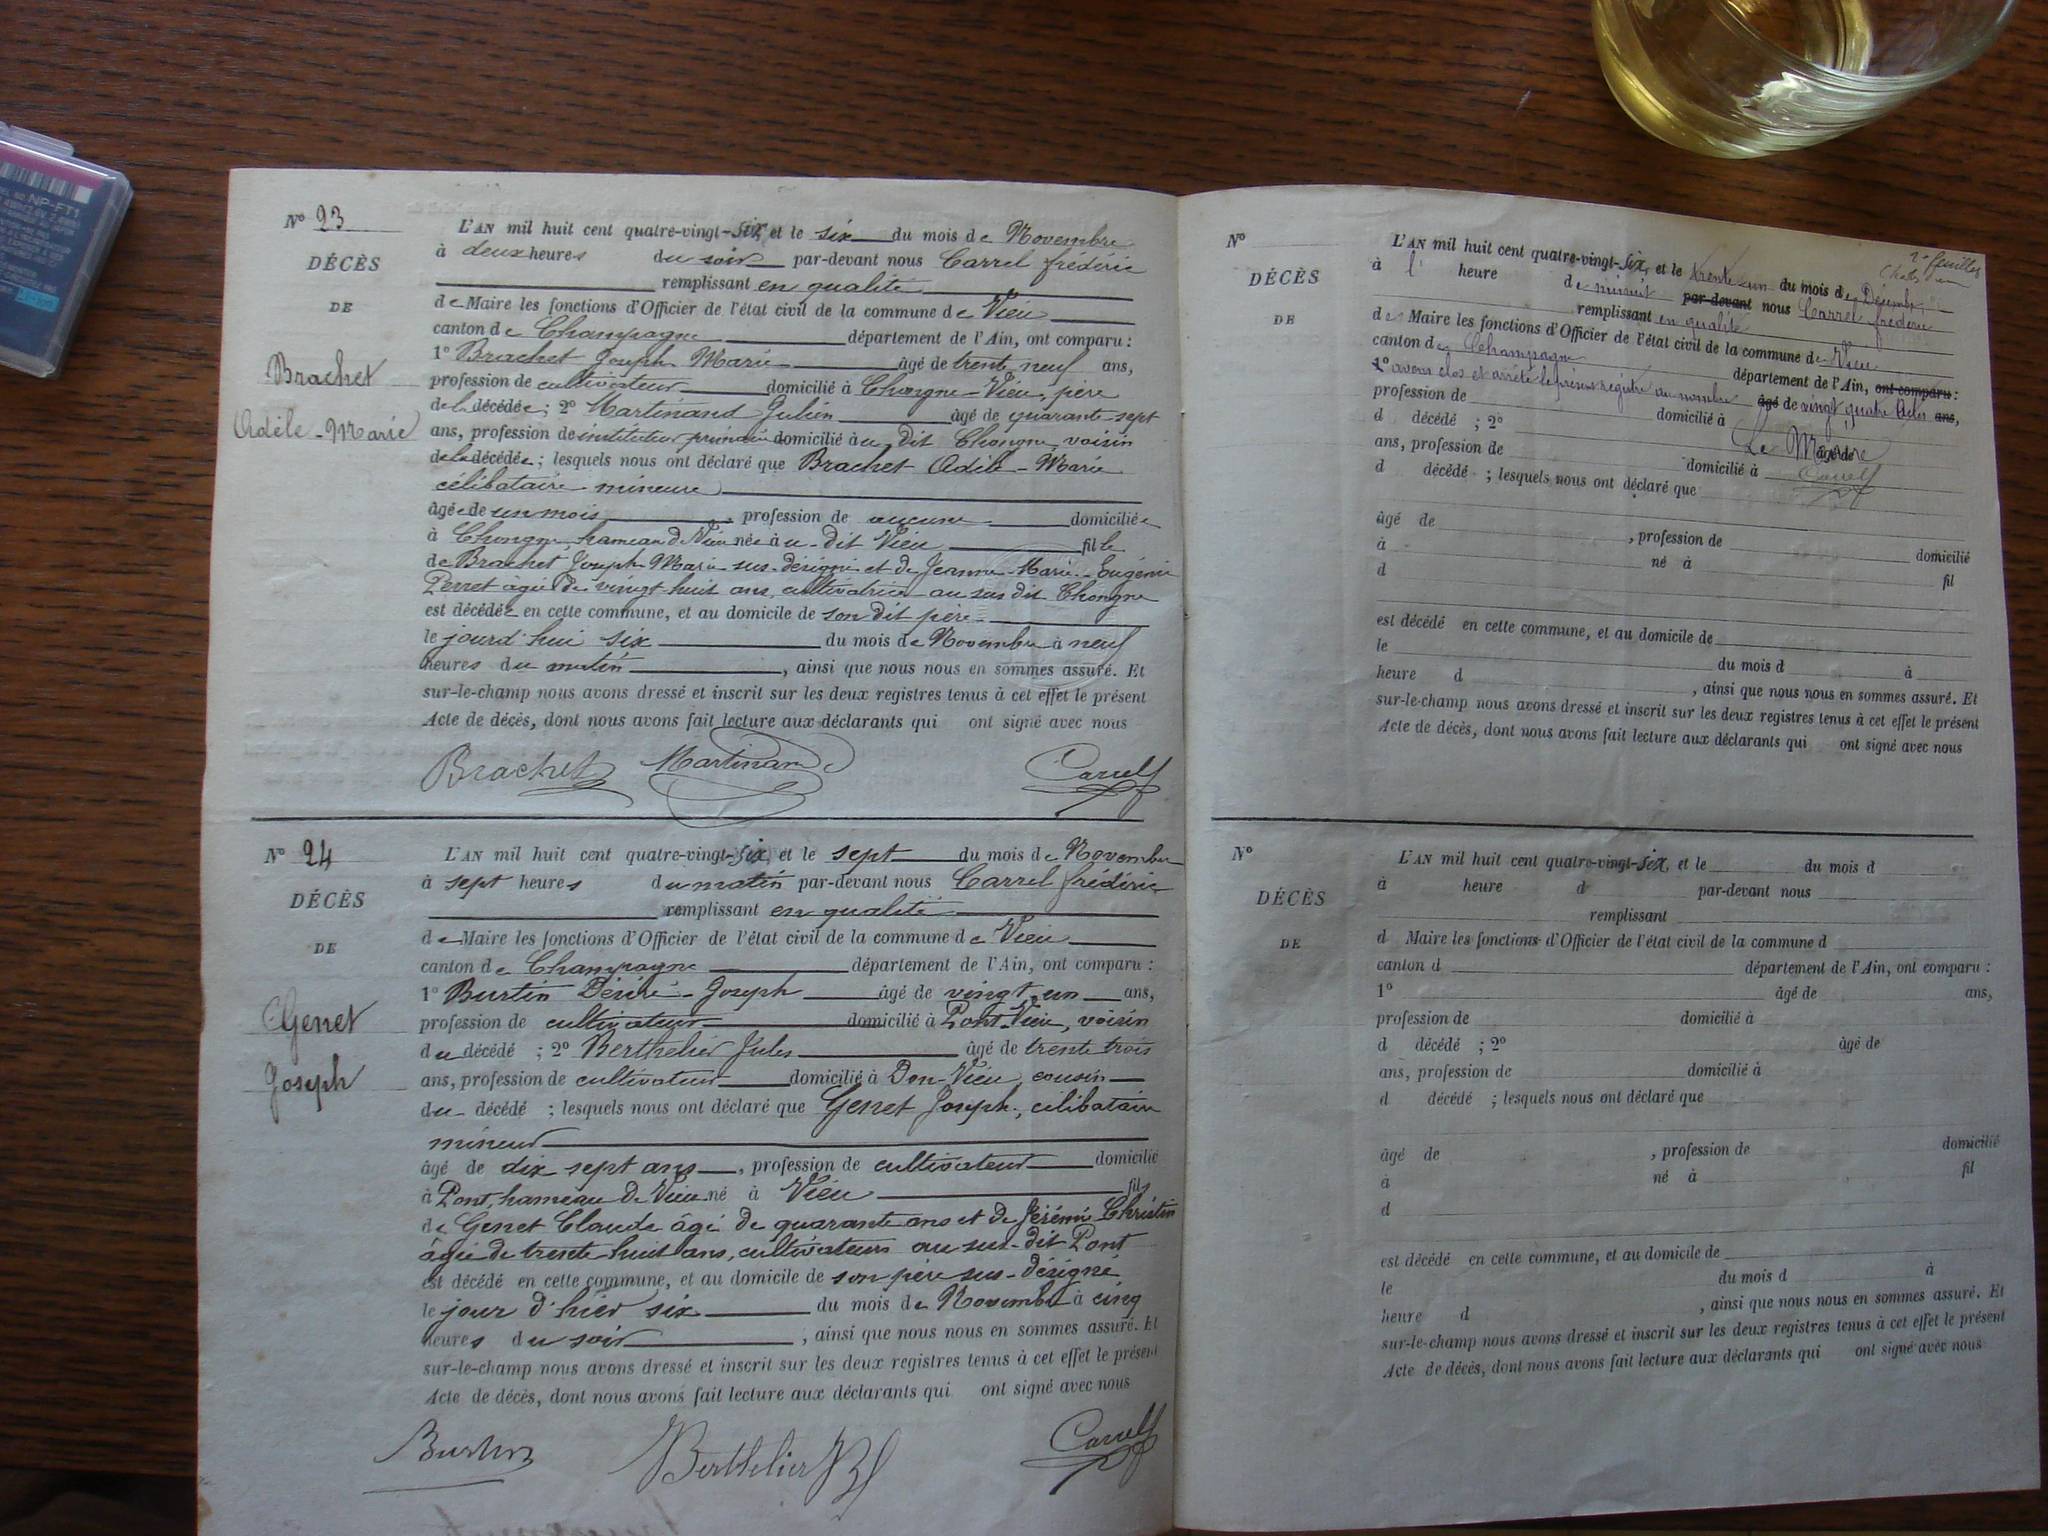 Nº 23
DÉCÈS
DE
Brachet
Adèle-Marie
L'AN mil huit cent quatre-vingt-six, et le six du mois de Novembre
à deux heures du soir par-devant nous Carrel frédéric
remplissant en qualité
de Maire les fonctions d'Officier de l'état civil de la commune de Vieu
canton de Champagne département de l'Ain, ont comparu :
1º Brachet Joseph Marie âgé de trente neuf ans,
profession de cultivateur domicilié à Chongne-Vieu, père
de la décédée ; 2º Martinand Julien âgé de quarante-sept
ans, profession de instituteur primaire domicilié à u dit Chongne, voisin
de la décédée ; lesquels nous ont déclaré que Brachet Adèle-Marie
célibataire mineure
âgée de un mois, profession de aucune domiciliée
à Chongne, hameau de Vieu née à u-dit Vieu fille
de Brachet Joseph Marie sus-désigné et de Jeanne-Marie-Eugénie
Perret âgée de vingt huit ans, cultivatrice au sus dit Chongne
est décédée en cette commune, et au domicile de son dit père
le jourd'hui six du mois de Novembre à neuf
heures du matin, ainsi que nous nous en sommes assuré. Et
sur-le-champ nous avons dressé et inscrit sur les deux registres tenus à cet effet le présent
Acte de décès, dont nous avons fait lecture aux déclarants qui ont signé avec nous
Brachet Martinand Carrel f
Nº 24
DÉCÈS
DE
Genet
Joseph
L'AN mil huit cent quatre-vingt-six, et le sept du mois de Novembre
à sept heures du matin par-devant nous Carrel frédéric
remplissant en qualité
de Maire les fonctions d'Officier de l'état civil de la commune de Vieu
canton de Champagne département de l'Ain, ont comparu :
1º Burtin Désiré-Joseph âgé de vingt un ans,
profession de cultivateur domicilié à Pont-Vieu, voisin
du décédé ; 2º Berthelier Jules âgé de trente trois
ans, profession de cultivateur domicilié à Don-Vieu, cousin
du décédé ; lesquels nous ont déclaré que Genet Joseph, célibataire
mineur
âgé de dix sept ans, profession de cultivateur domicilié
à Pont, hameau de Vieu né à Vieu fils
de Genet Claude âgé de quarante ans et de Jérémie Christin
âgée de trente-huit ans, cultivateurs au sus-dit Pont
est décédé en cette commune, et au domicile de son père sus-désigné
le jour d'hier six du mois de Novembre à cinq
heures du soir, ainsi que nous nous en sommes assuré. Et
sur-le-champ nous avons dressé et inscrit sur les deux registres tenus à cet effet le présent
Acte de décès, dont nous avons fait lecture aux déclarants qui ont signé avec nous
Burtin Berthelier Carrel f
2e feuillet
Nº
DÉCÈS
DE
L'AN mil huit cent quatre-vingt-six, et le trente un du mois de Décembre
à l' heure de minuit par-devant nous Carrel frédéric
remplissant en qualité
de Maire les fonctions d'Officier de l'état civil de la commune de Vieu
canton de Champagne département de l'Ain, ont comparu :
1º avons clos et arrêté le présent registre au nombre âgé de vingt quatre Actes ans,
profession de domicilié à
d décédé ; 2º Le Maire âgé de
ans, profession de domicilié à Carrel f
d décédé ; lesquels nous ont déclaré que
âgé de , profession de domicilié
à né à fil
d
est décédé en cette commune, et au domicile de
le du mois d à
heure d , ainsi que nous nous en sommes assuré. Et
sur-le-champ nous avons dressé et inscrit sur les deux registres tenus à cet effet le présent
Acte de décès, dont nous avons fait lecture aux déclarants qui ont signé avec nous
Nº
DÉCÈS
DE
L'AN mil huit cent quatre-vingt-six, et le du mois d
à heure d par-devant nous
remplissant
d Maire les fonctions d'Officier de l'état civil de la commune d
canton d département de l'Ain, ont comparu :
1º âgé de ans,
profession de domicilié à
d décédé ; 2º âgé de
ans, profession de domicilié à
d décédé ; lesquels nous ont déclaré que
âgé de , profession de domicilié
à né à fil
d
est décédé en cette commune, et au domicile de
le du mois d à
heure d , ainsi que nous nous en sommes assuré. Et
sur-le-champ nous avons dressé et inscrit sur les deux registres tenus à cet effet le présent
Acte de décès, dont nous avons fait lecture aux déclarants qui ont signé avec nous
NP-FT1